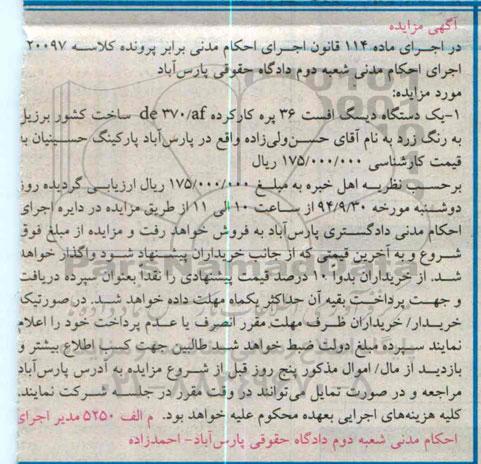 آگهی مزایده
در اجـرای ماده ۱۱۴ قانون اجـرای احکام مدنی برابر پرونده کلاسـه ۲۰۰۹۷
اجرای احکام مدنی شعبه دوم دادگاه حقوقی پارس‌آباد
مورد مزایده:
۱-یک دستگاه دیسک افست ۳۶ پره کارکرده de ۳۷۰/af ساخت کشور برزیل
به رنگ زرد به نام آقای حسـن‌ولی‌زاده واقع در پارس‌آباد پارکینگ حسـینیان به
قیمت کارشناسی ۱۷۵/۰۰۰/۰۰۰ ریال
برحسـب نظریـه اهل خبره به مبلـغ ۱۷۵/۰۰۰/۰۰۰ ریال ارزیابـی گردیده روز
دوشـنبه مورخه ۹۴/۹/۳۰ از سـاعت ۱۰ الی ۱۱ از طریق مزایده در دایره اجرای
احکام مدنی دادگستری پارس‌آباد به فروش خواهد رفت و مزایده از مبلغ فوق
شـروع و به آخرین قیمتی که از جانب خریداران پیشـنهاد شـود واگذار خواهد
شـد. از خریداران بدوا ۱۰ درصد قیمت پیشنهادی را نقدا بعنوان سپرده دریافت
و جهـت پرداخـت بقیه آن حداکثر یکماه مهلت داده خواهد شـد. در صورتیکه
خریـدار/ خریداران ظـرف مهلت مقرر انصرف یا عـدم پرداخت خود را اعلام
نمایند سـپرده مبلغ دولت ضبط خواهد شـد طالبین جهت کسب اطلاع بیشتر و
بازدیـد از مال/ اموال مذکور پنج روز قبل از شـروع مزایده به آدرس پارس‌آباد
مراجعه و در صورت تمایل می‌توانند در وقت مقرر در جلسـه شـرکت نمایند.
کلیه هزینه‌های اجرایی بعهده محکوم علیه خواهد بود. م الف ۵۲۵۰ مدیر اجرای
احکام مدنی شعبه دوم دادگاه حقوقی پارس‌آباد- احمدزاده
ParsNamadData